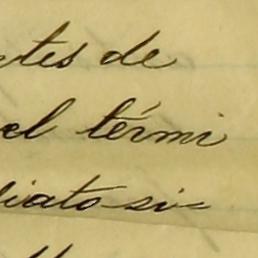 tes de
el térmi
diato si=